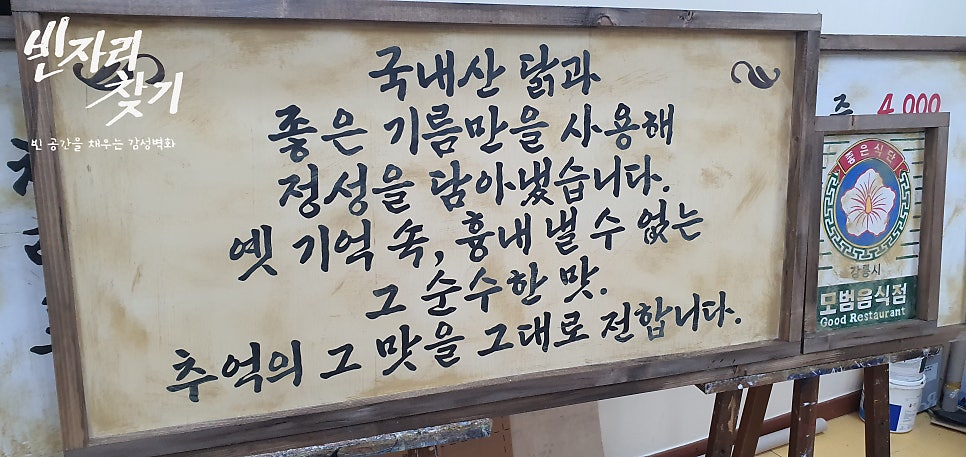 빈자리
찾기
빈 공간을 채우는 감성벽화
국내산 닭과
좋은 기름만을 사용해
정성을 담아냈습니다.
옛 기억 속, 흉내 낼 수 없는
그 순수한 맛.
추억의 그 맛을 그대로 전합니다.
4,000
좋은식단
강릉시
모범음식점
Good Restaurant